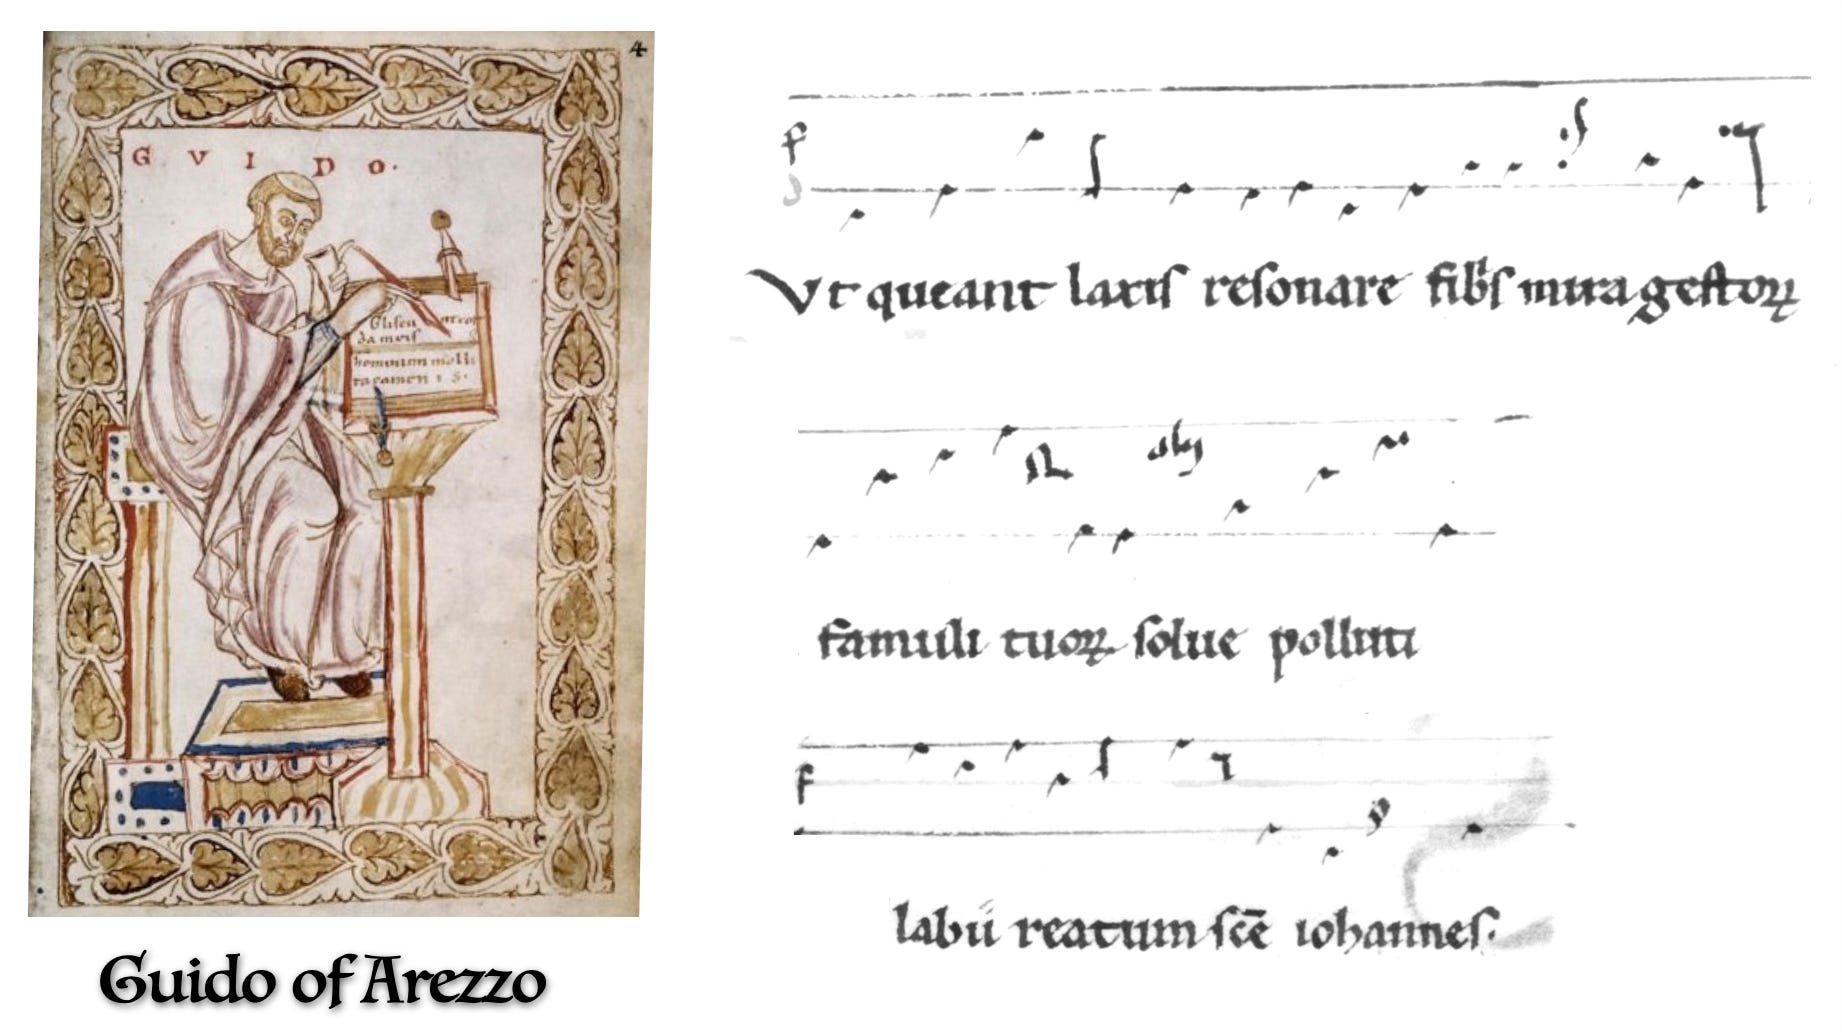 4
G V I D O.
homonum molli
Guido of Arezzo
f
Vt queant laxiſ reſonare fibꝭſ mira geſtoꝝ
famuli tuoꝝ ſolue polluti
f
labıı̄ reatum ſcē iohanneſ.